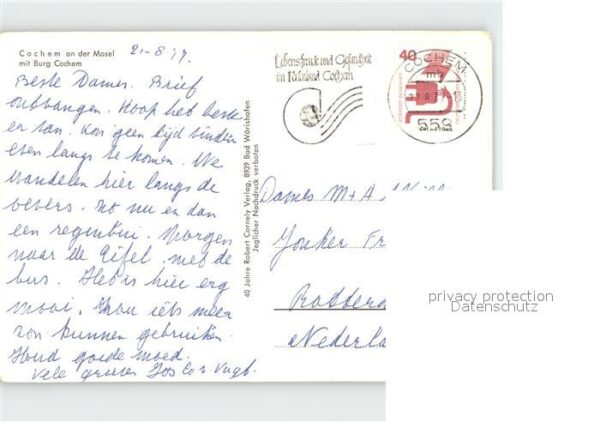 Cochem an der Mosel
mit Burg Cochem
Beste Dames. Brief
ontvangen. Hoop het beste
er van. Kon geen tijd vinden
even langs te komen. We
wandelen hier langs de
oevers. Zo nu en dan
een regenbui. Morgen
naar de Eifel met de
bus. Het is hier erg
mooi. Zou iets meer
zon kunnen gebruiken.
Houd goede moed.
Vele groeten
40 Jahre Robert Cornely Verlag, 8939 Bad Wörishofen
Jeglicher Nachdruck verboten
Lebensfreude und Gesundheit
im Kreisland Cochem
40
COCHEM
559
Dames M + A
Jonker Fr
Rotterd
Nederla
privacy protection
Datenschutz